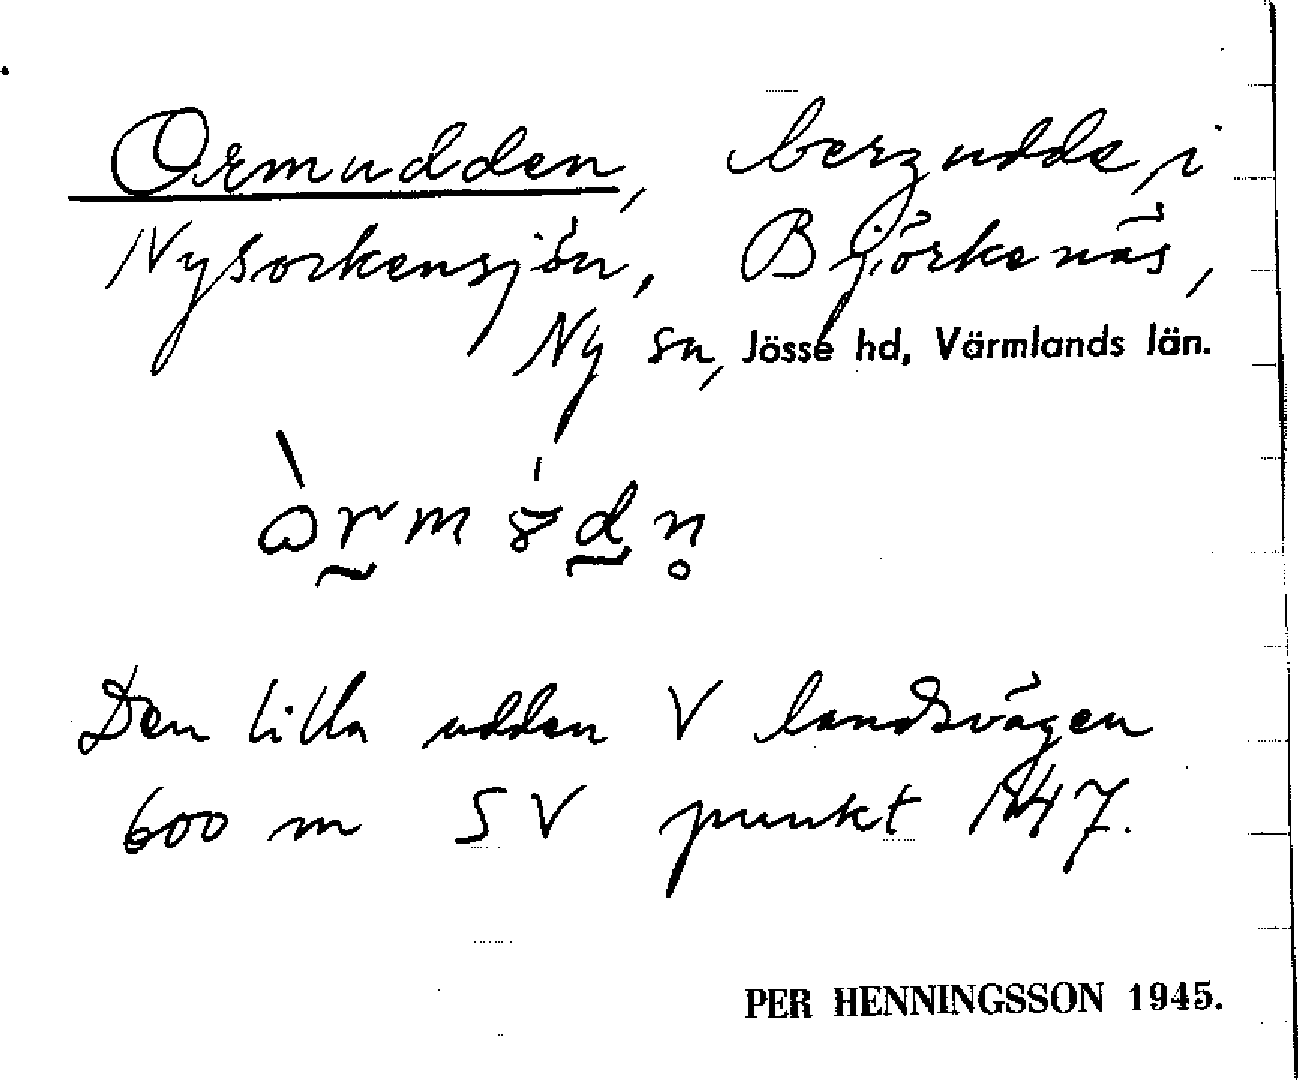 Ormudden, bergudde i
Nysockensjön, Björkenäs,
Ny sn, Jösse hd, Värmlands län.
Den lilla udden V landsvägen
600 m SV punkt 147.
PER HENNINGSSON 1945.